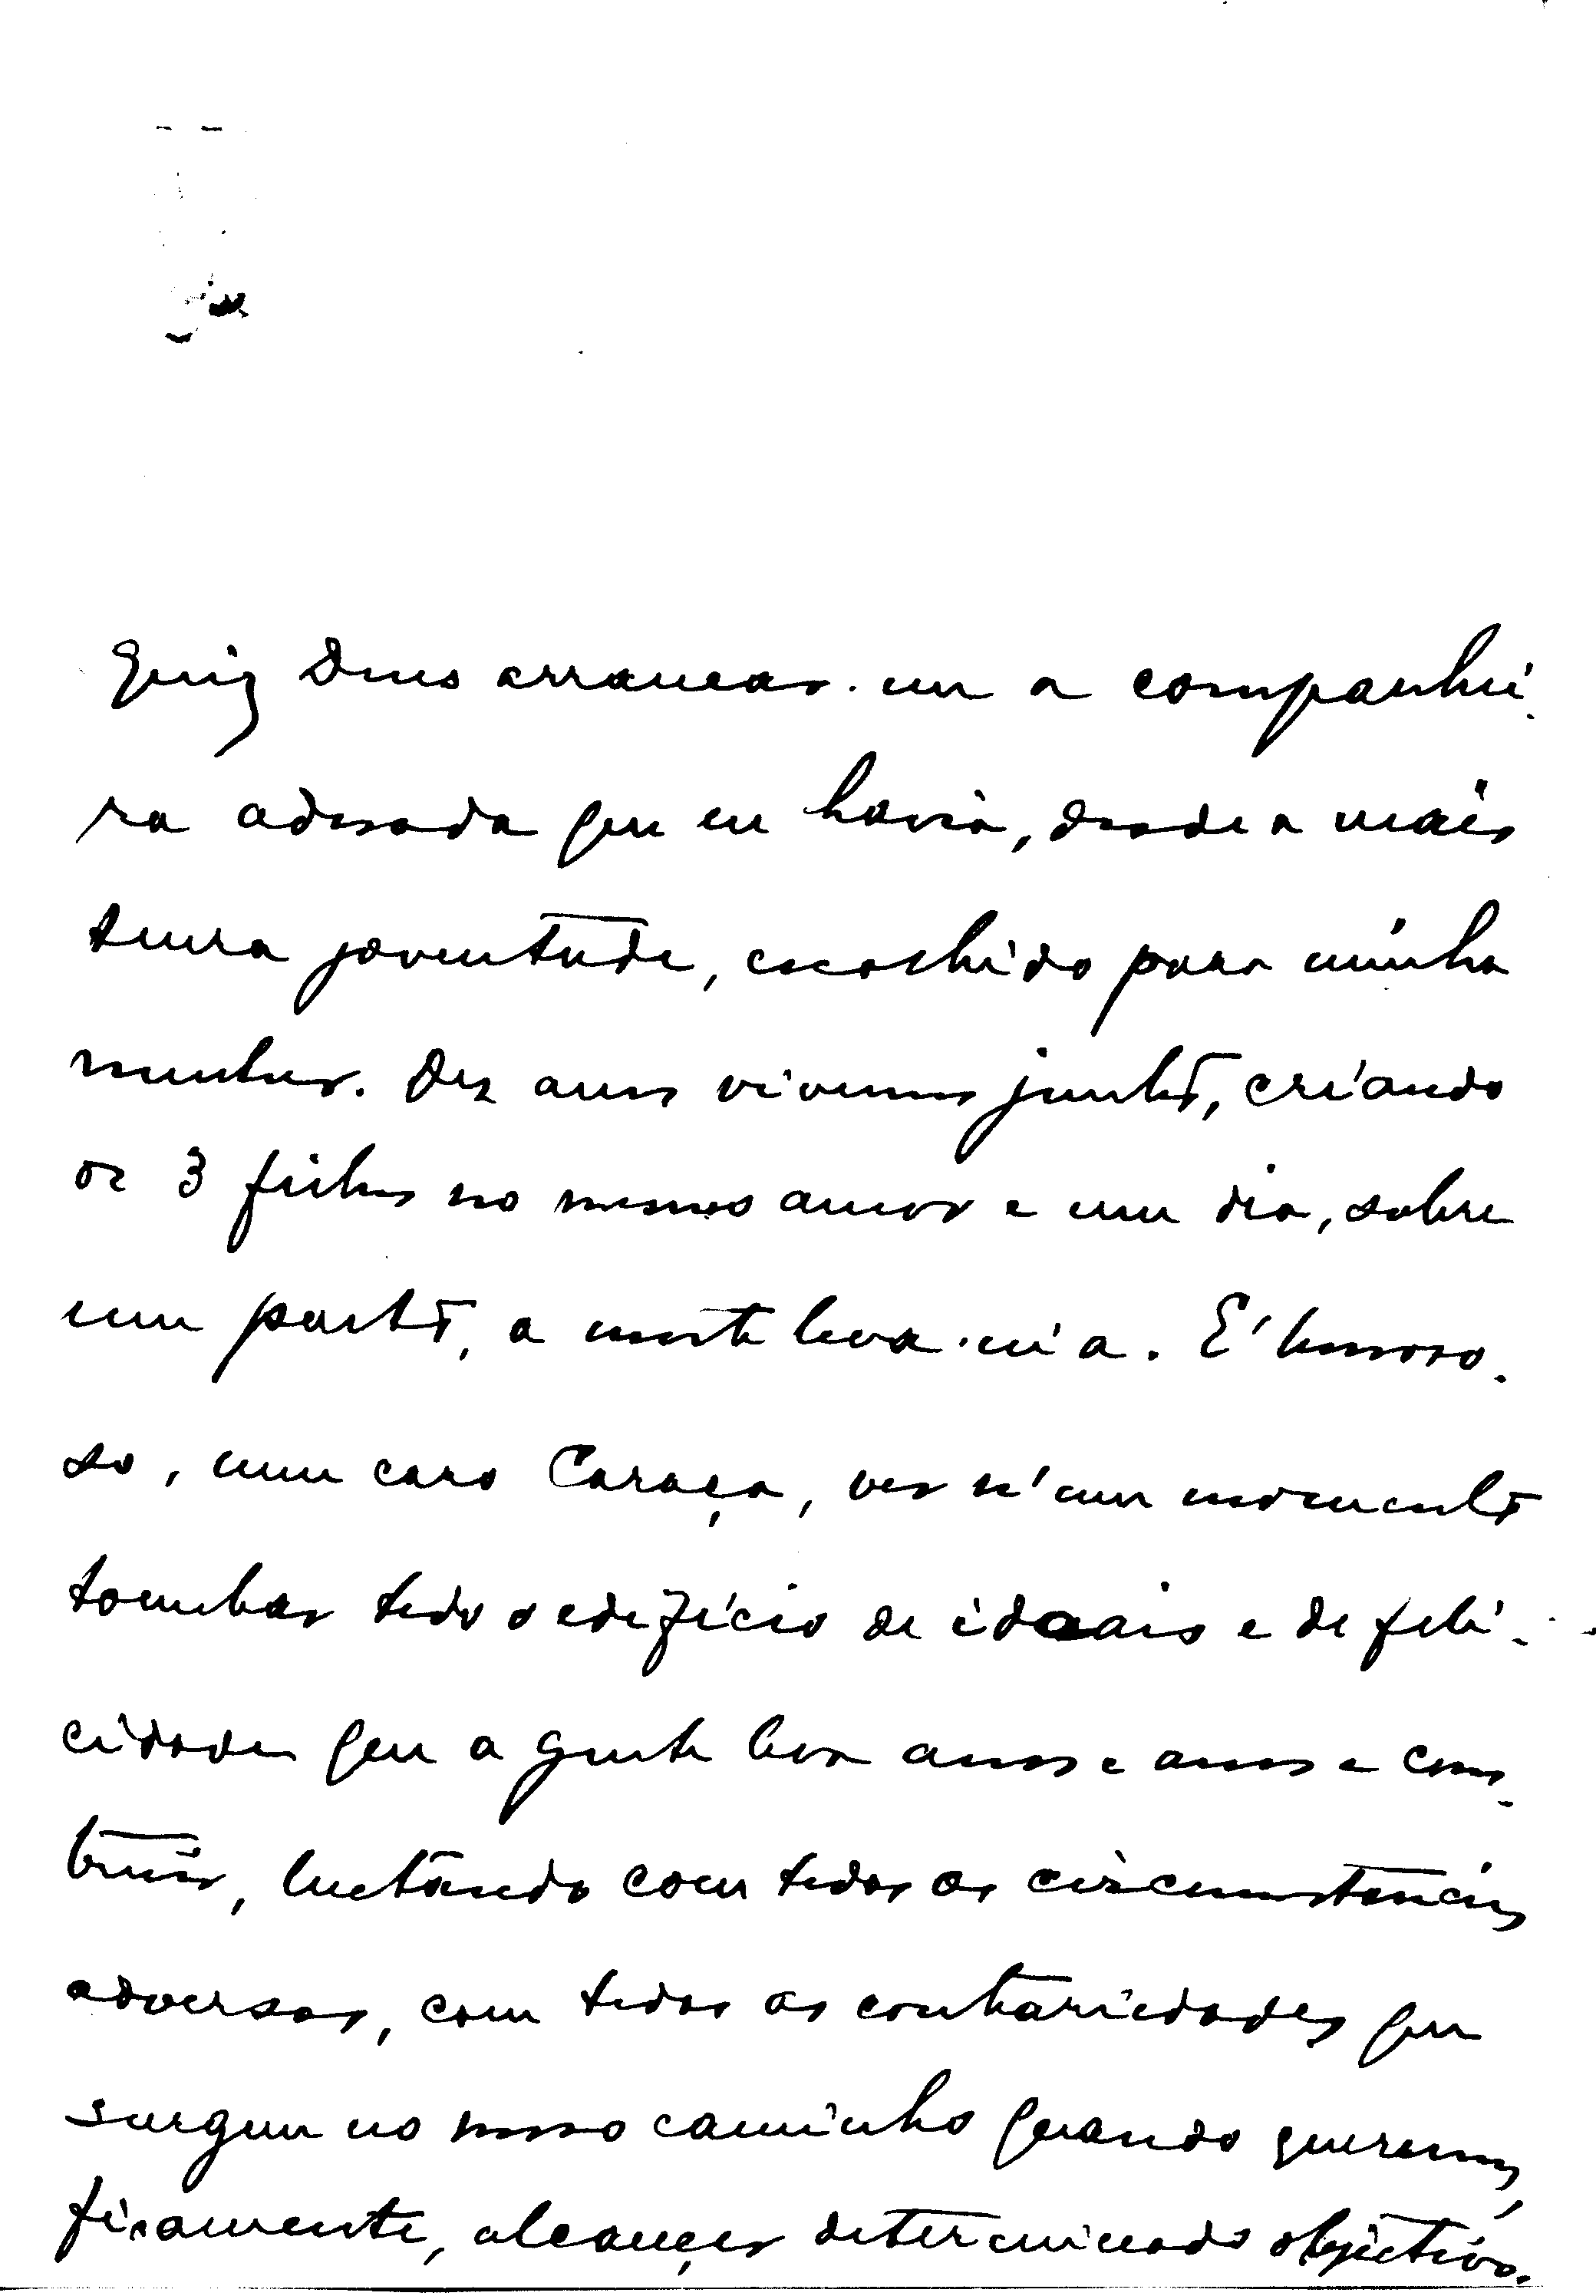 Quiz Deus arrancar-me a companhei-
ra adorada que eu havia, desde a mais
tenra joventude, escolhido para minha
mulher. Dez anos vivemos juntos, criando
os 3 filhos no nosso amor e um dia, sobre
um parto, a morte leva-m'a. É horroro-
so, meu caro Caraça, ver n'um momento
tombar todo o edifício de ideais e de feli-
cidade que a gente leva anos e anos a cons-
truir, luctando com todas as circumstancias
adversas, com todas as contrariedades que
surgem no nosso caminho quando queremos,
fixamente, alcançar determinado objectivo.